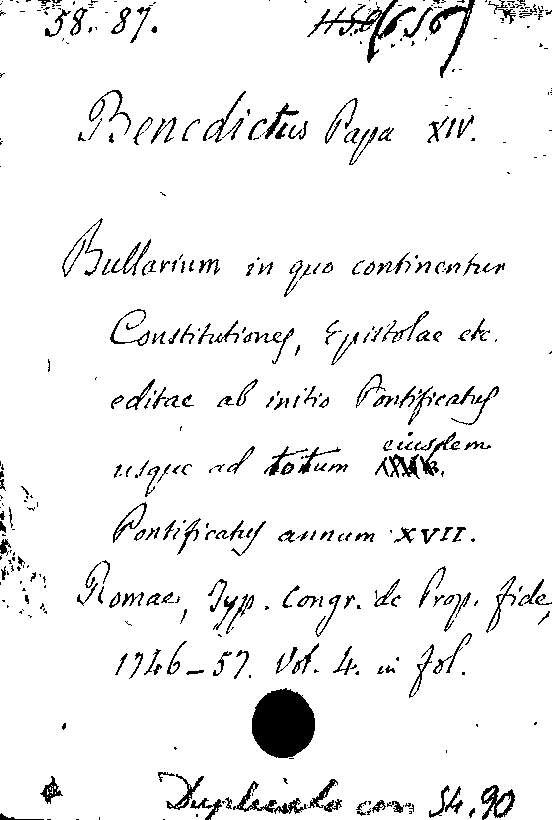 58. 87. (656)
Benedictus Papa XIV.
Bullarium in quo continentur
Constitutiones, Epistolae etc.
editae ab initio Pontificatus
usque ad totum eiusdem
Pontificatus annum XVII.
Romae, Typ. Congr. de Prop. fide,
1746–57. Vol. 4. in fol.
Duplicato con 54.90